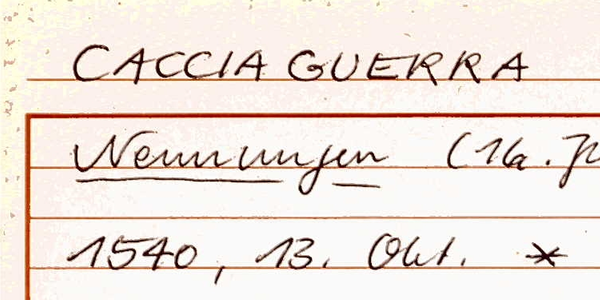 CACCIA GUERRA
Nennungen (16. J
1540, 13. Okt. *